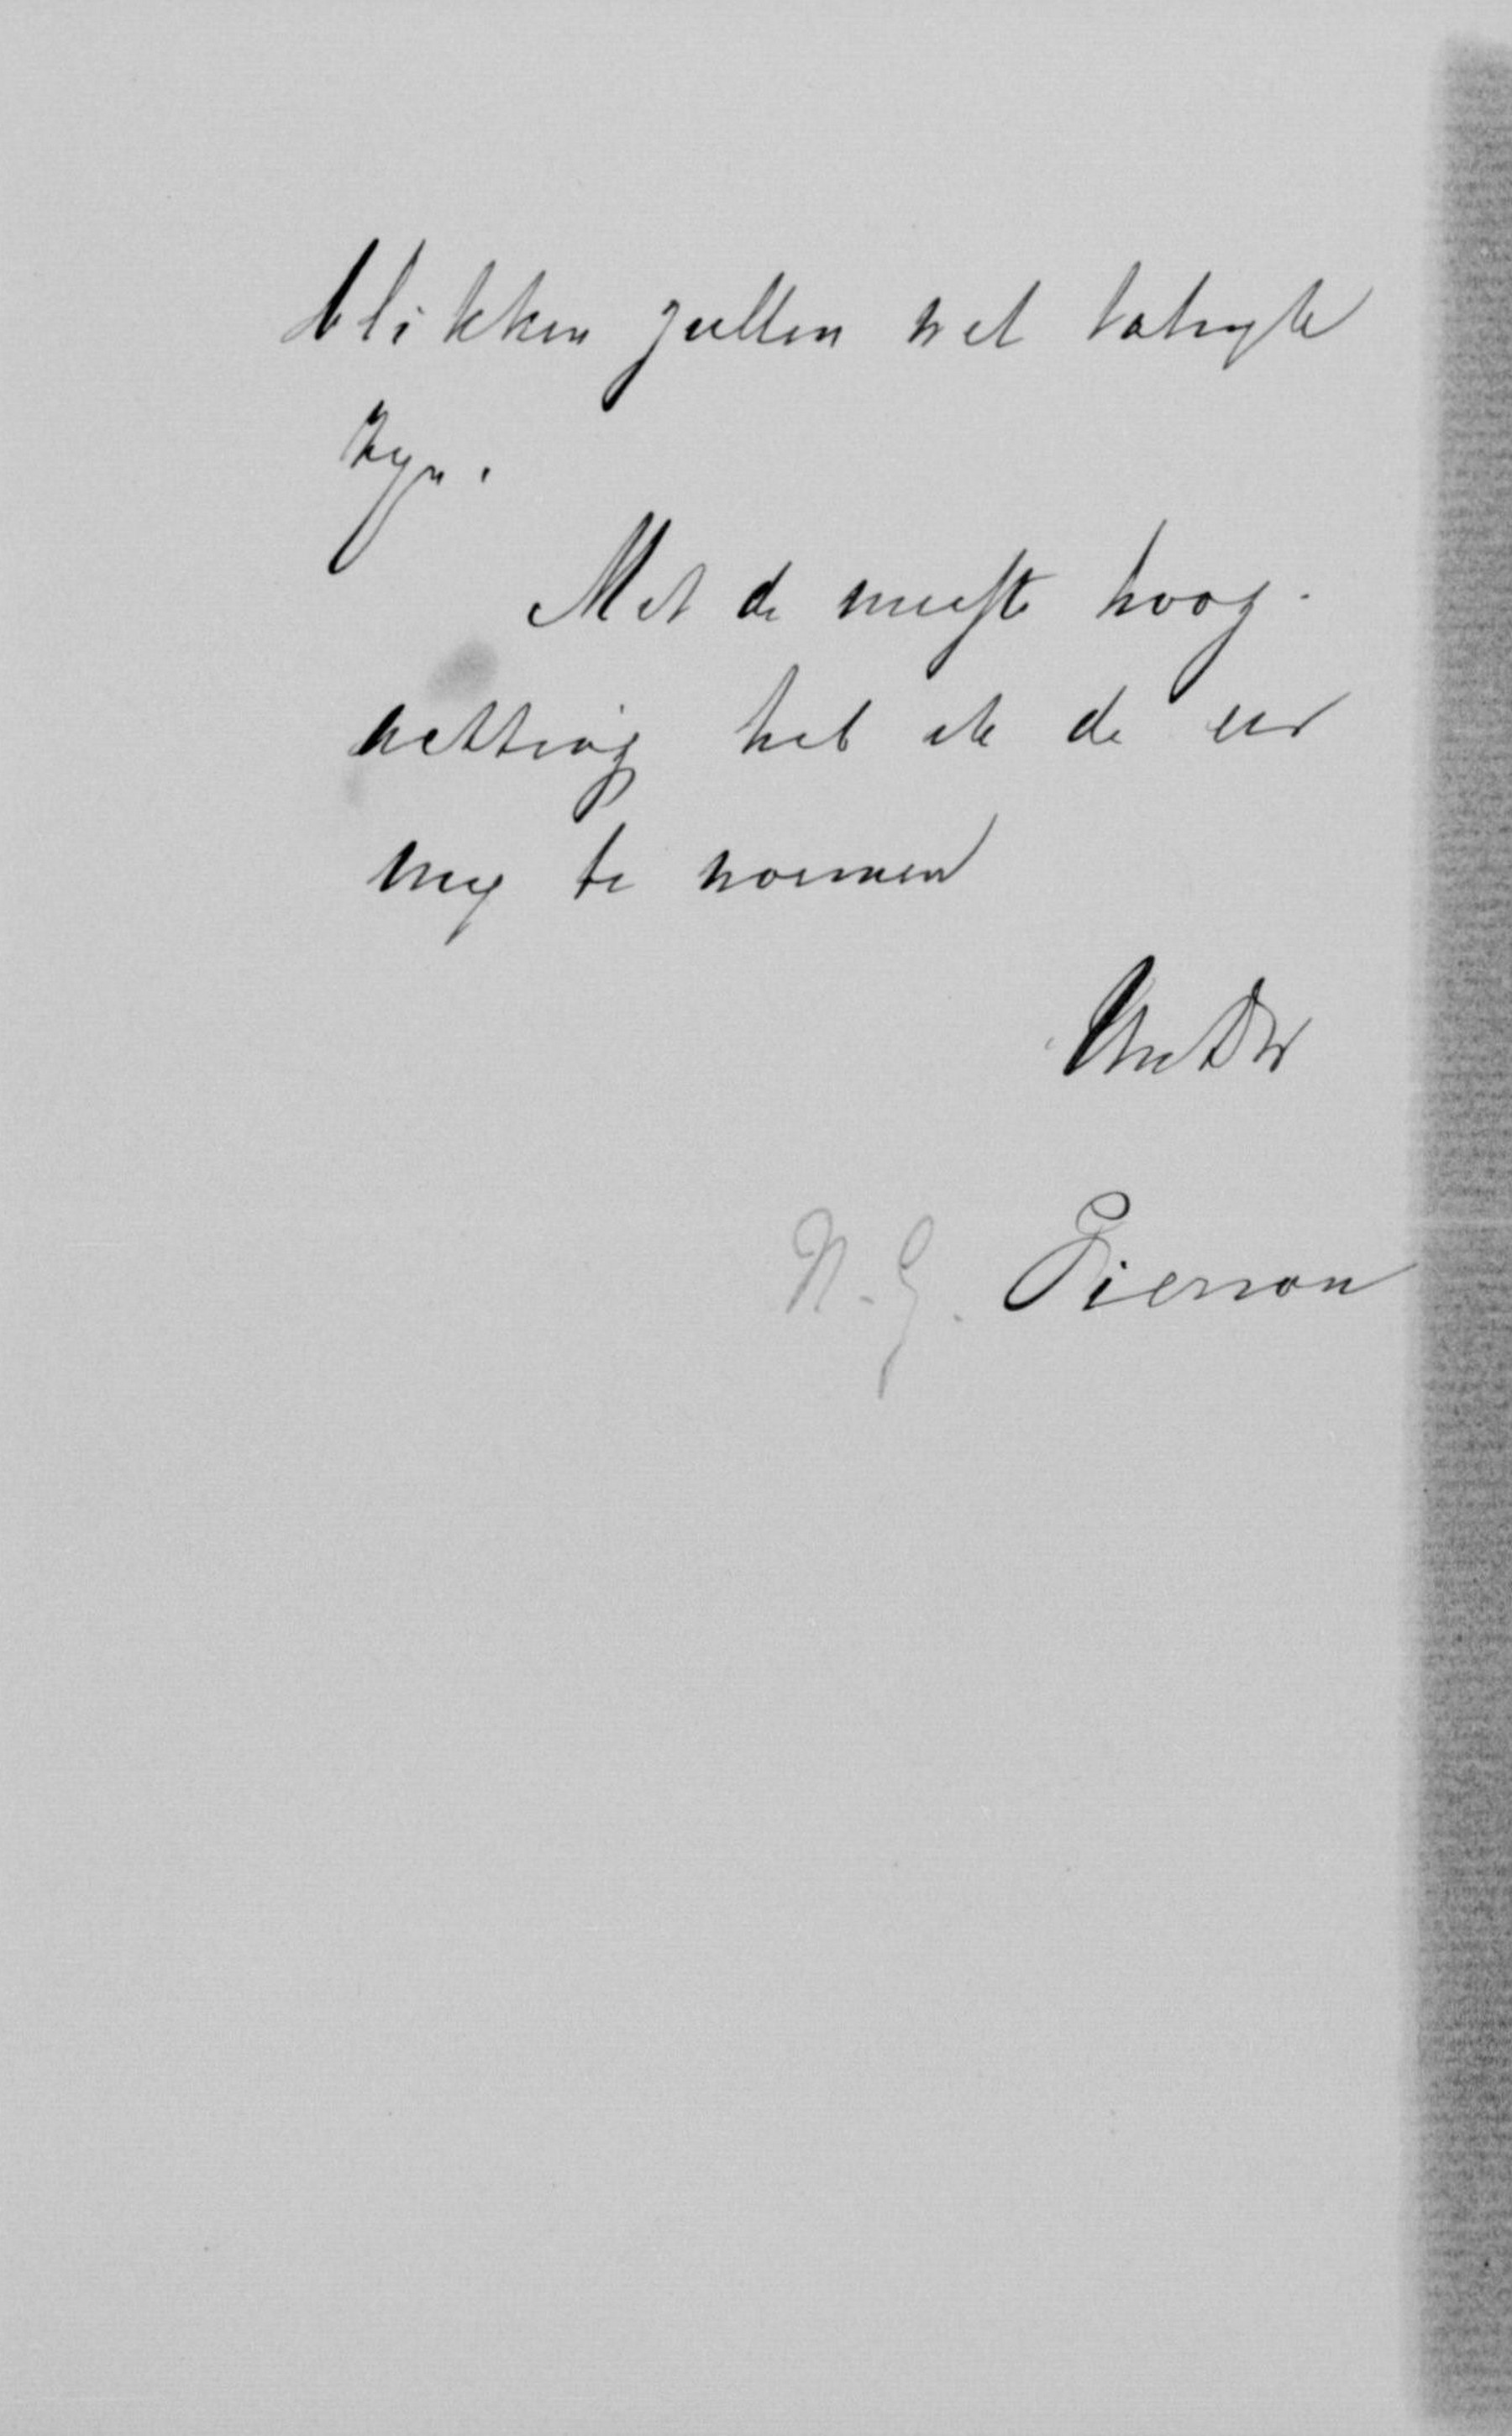 blikken zullen wel talryk
zyn.
Met de meeste hoog-
achting heb ik de eer
my te noemen
UwDw
N. G. Pierson